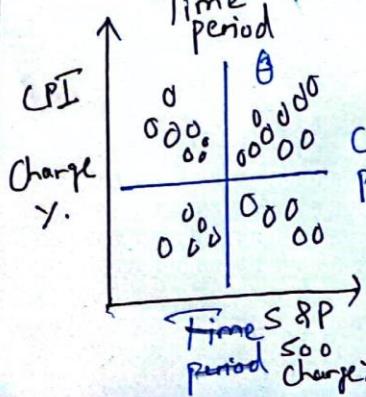 Time
period
CPI
Charge
%.
C
Time
period
S &P
500
Charge: